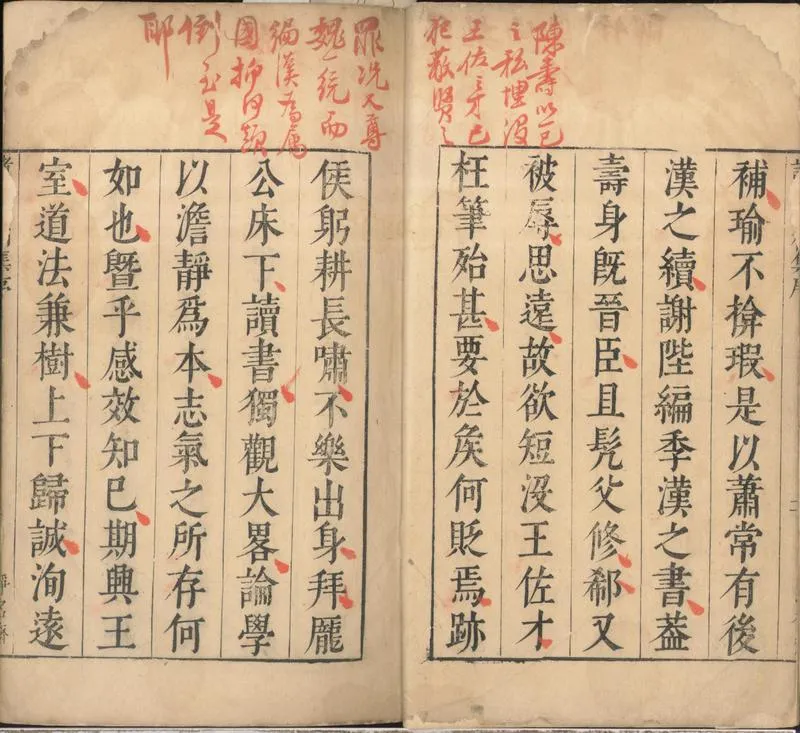 陳壽以己
之私埋没
王佐之才已
犯蔽賢之
罪况又尊
魏一統而
編漢爲屬
國抑何顛
倒至是
耶
補瑜不揜瑕是以蕭常有後
漢之續謝陛編季漢之書葢
壽身旣晉臣且髠父修郗又
被辱思遠故欲短沒王佐才
枉筆殆甚要於矦何貶焉跡
矦躬耕長嘯不樂出身拜龐
公床下讀書獨觀大畧論學
以澹靜爲本志氣之所存何
如也曁乎感效知已期興王
室道法兼樹上下歸誠洵遠